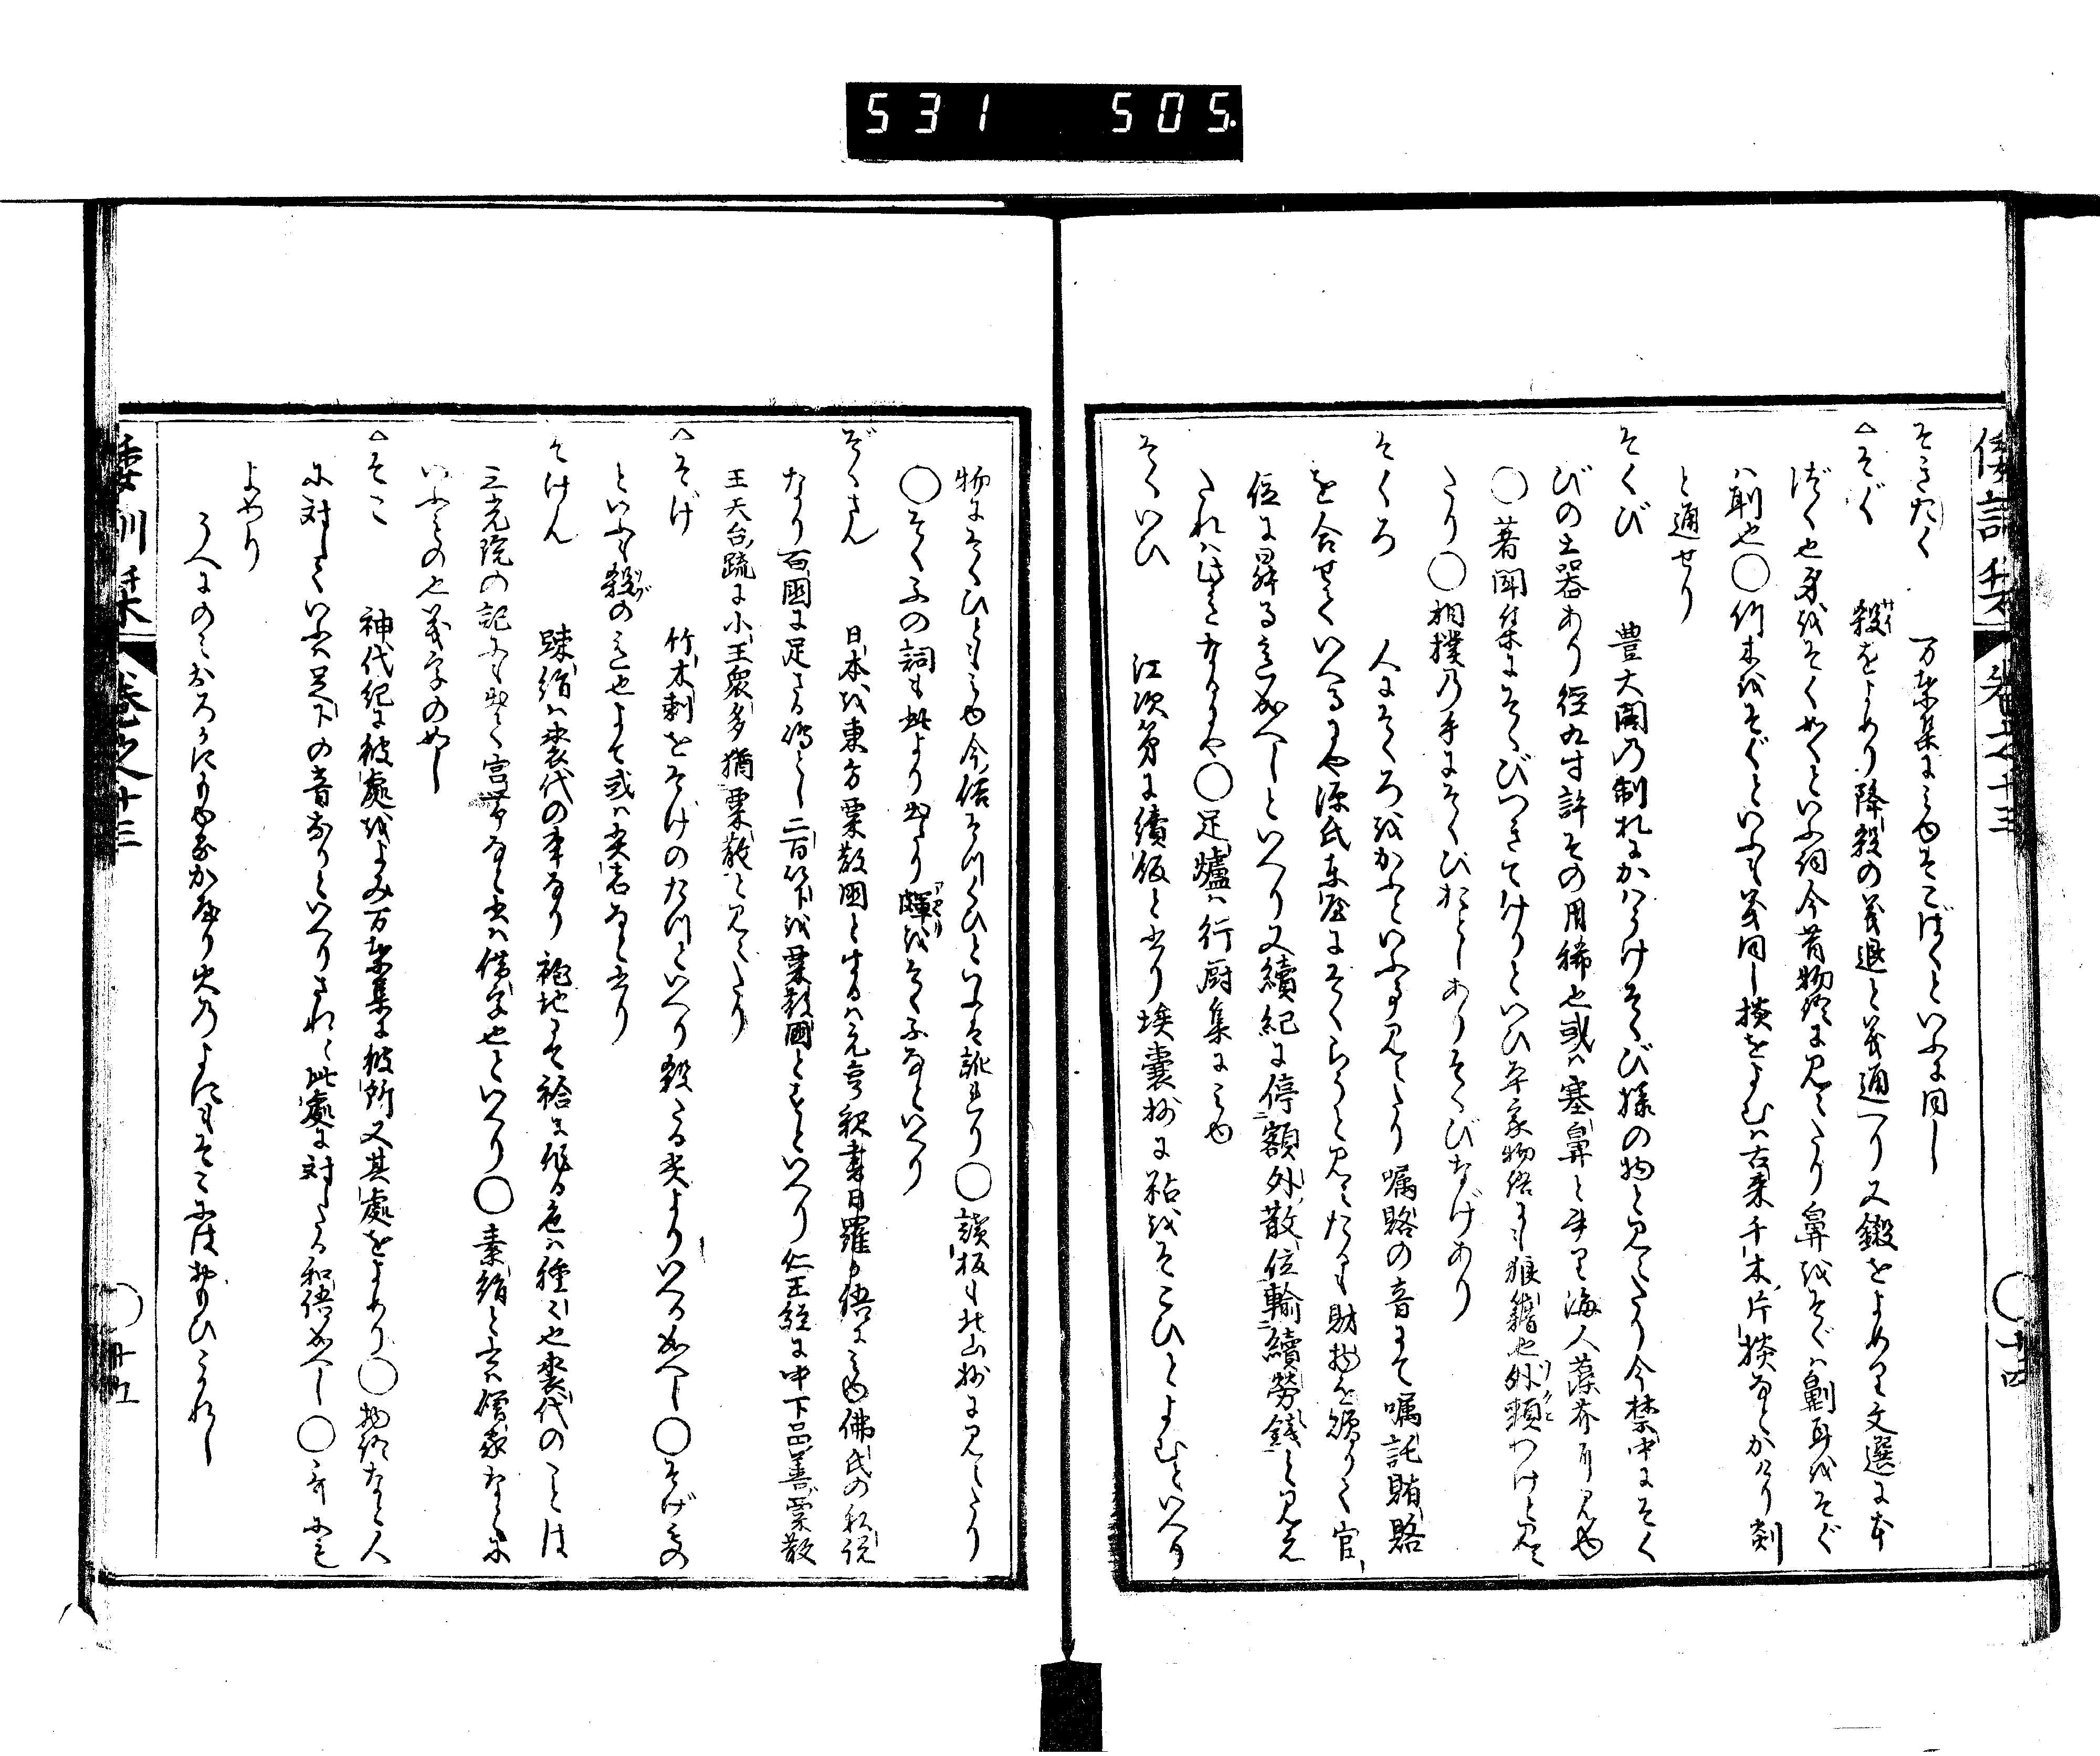 531 505.
倭訓栞 巻之十三 ○十四
そきたく 万葉集にみゆそこばくといふに同し
△そぐ 殺をよめり降殺の義退と義通へり又鍛をよめり文選に
ばく也身をそぐ如くといふ詞今昔物語に見えたり鼻をそぐハ劓耳をそぐ
ハ刵也○竹木をそぐといふも義同し掞をよむハ古来千木片掞なとかけり剡
と通せり
そくび 豊大閤乃制札にかハらけそくび様の物と見えたり今禁中にそく
びの土器あり径九寸許その用稀也或ハ塞鼻と海人藻芥に見ゆ
○著聞集にそくびつきてけりといひ平家物語にも狼籍也外頬つけと見え
たり○相撲乃手にそくびおとしありそくびなげあり
そくろ 人にそくろをかふといふ事見えたり嘱賂の音にて嘱託賄賂
を合せていへるにや源氏東屋にそくらうと見えたるも財物を領りて官
位に昇る意成へしといへり又續紀に停額外散位輸續労錢と見え
たれハ此意なるにや○足爐ハ行厨集にみゆ
そくいひ 江次第に續飯と書り埃嚢抄に粘をそこひとよむといへり
物にそくひともみゆ今俗そつくひといふは訛れり○讀板も北山抄に見えたり
○そくふの詞も此より出たり をそくふなといへり
ぞくさん 日本を東方粟散國とするハ元亨釈書日羅か語にみゆ佛氏の私説
なり百國に足さる 二百以下を粟散國とすといへり仁王経に中下品善粟散
王天台疏に小王衆多猶粟散と見えたり
△そげ 竹木刺をそげのたつといへり殺たる裂よりいへる成へし○そげ者の
といふも殺の意也よて或ハ尖者なと書り
そけん 踈絹ハ裘代の事なり袍地にて袷に作る色ハ種々也裘代のことは
三光院の記にも出て宮 なと書ハ借字也といへり○素絹と書ハ僧家なとに
いふもの也義字の如し
△そこ 神代紀に彼處をよみ万葉集に彼所又其處をよめり○物語なと人
に対していふハ足下の音なりといへりされと此處に対したる和語成へし○哥にも
よめり
うへにのミおろかにもゆるかやり火乃よにもそこにはおもひこかれし
倭訓栞 巻之十三 ○十五